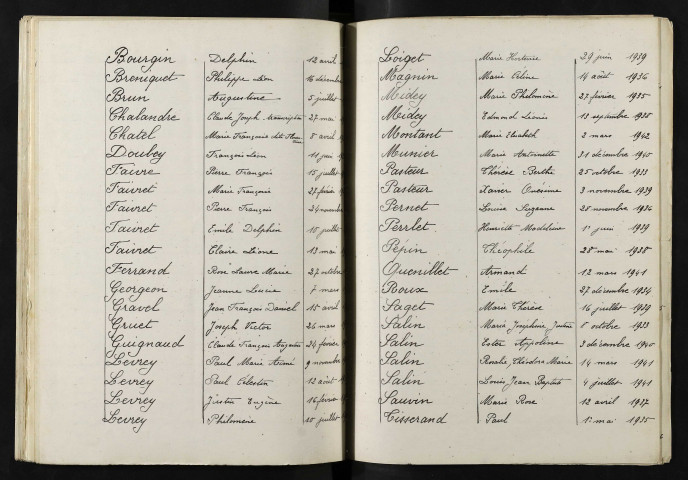 Bourgin Delphin 12 avril
Breniquet Philippe Léon 16 décembre
Brun Augustine 5 juillet
Chalandre Claude Joseph 27 mai
Chatel Marie Françoise 8 avril
Doubey François Léon 11 juin
Faivre Pierre François 15 juillet
Faivret Marie François 27 février
Faivret Pierre François 24 novembre
Faivret Emile Delphin 10 juillet
Faivret Claire Liane 13 mai
Ferrand Rose Laure Marie 27 octobre
Georgeon Jeanne Lucie 7 mars
Gravel Jean François Daniel 15 avril
Gruet Joseph Victor 26 mars
Guignaud Claude François Augustin 24 février
Levrey Paul Marie Aimé 9 novembre
Levrey Paul Célestin 12 août
Levrey Justin Eugène 16 février
Levrey Philomène 10 juillet
Loiget Marie Hortense 29 juin 1939
Magnin Marie Céline 14 août 1936
Midey Marie Philomène 27 février 1935
Midey Edmond Léonis 13 septembre 1938
Montant Marie Elisabeth 2 mars 1942
Munier Marie Antoinette 31 décembre 1940
Pasteur Thérèse Berthe 25 octobre 1933
Pasteur Xavier Onésime 3 novembre 1939
Pernet Louise Suzanne 25 novembre 1934
Perrlet Henriette Madeleine 1er juin 1939
Pépin Théophile 28 mai 1938
Quenillet Armand 12 mars 1941
Roux Emile 27 décembre 1934
Saget Marie Thérèse 16 juillet 1939
Salin Marie Joséphine Justine 8 octobre 1933
Salin Ester Appoline 3 décembre 1940
Salin Rosalie Théodore Marie 14 mars 1941
Salin Louis Jean Baptiste 4 juillet 1941
Sauvin Marie Rose 12 avril 1937
Tisserand Paul 1er mai 1935